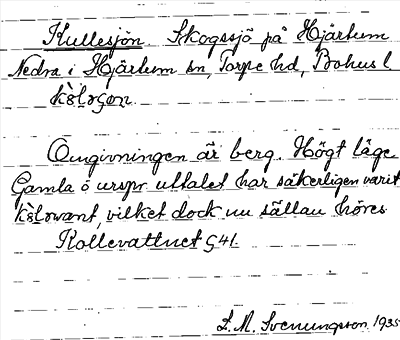 Kullesjön. Skogssjö på Hjärtum
Nedra i Hjärtum sn, Torpe hd, Bohusl
Omgivningen är berg. Högt läge.
Gamla o urspr uttalet har säkerligen varit
vilket dock nu sällan höres
Kollevattnet G41.
L. M. Svenungsson 1935